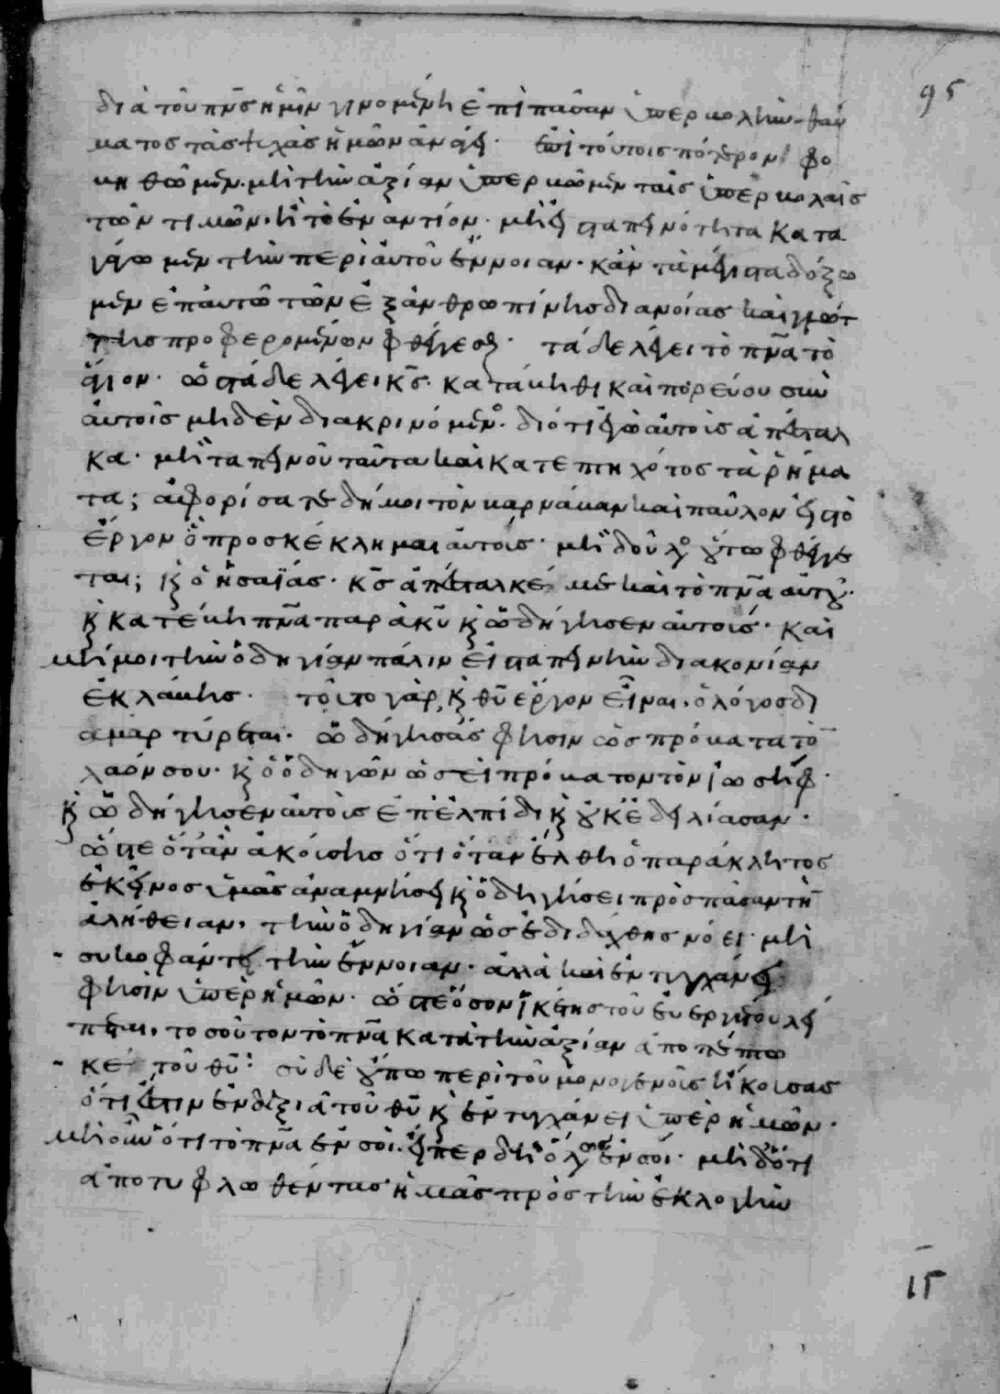 95
διὰ τοῦ πνς ἡμῖν γινομένη ἐπὶ πᾶσαν ὑπερβολὴν θαύ
ματος τὰς ψυχὰς ἡμῶν ἀνάγει. ἐπὶ τούτοις πότερον φο
βηθῶμεν. μὴ τὴν ἀξίαν ὑπερβῶμεν ταῖς ὑπερβολαῖς
τῶν τιμῶν. ἢ τὸ ἐναντίον. μὴ εἰς ταπεινότητα κατα
γάγωμεν τὴν περὶ αὐτοῦ ἔννοιαν. κἂν τὰ μέγιστα δόξω
μεν ἐπ' αὐτῶ τῶν ἐξ ἀνθρωπίνης διανοίας καὶ γλώτ
της προφερομένων φθέγγεσθαι. τάδε λέγει τὸ πνα τὸ
ἅγιον. ὡς τάδε λέγει κς. κατάβηθι καὶ πορεύου σὺν
αὐτοῖς μηδὲν διακρινόμενος. διότι ἐγὼ αὐτοὺς ἀπέσταλ
κα. μὴ ταπεινοῦ ταῦτα καὶ κατεπτηχότος τὰ ῥήμα
τα; ἀφορίσατε δή μοι τὸν βαρνάβαν καὶ παῦλον εἰς τὸ
ἔργον ὃ προσκέκλημαι αὐτούς. μὴ δοῦλος οὕτω φθέγγε
ται; κ ὁ ἡσαΐας. κς ἀπέσταλκέ με καὶ τὸ πνα αὐτοῦ.
κ κατέβη πνα παρὰ κυ κ ὡδήγησεν αὐτούς. καὶ
μή μοι τὴν ὁδηγίαν πάλιν εἰς ταπεινὴν διακονίαν
ἐκλάβης. τοῦτο γὰρ κ θυ ἔργον εἶναι. ὁ λόγος δι
αμαρτύρεται. ὡδήγησάς φησιν ὡς πρόβατα τὸ
λαόν σου. κ ὁ ὁδηγῶν ὡσεὶ πρόβατον τὸν ἰωσήφ.
κ ὡδήγησεν αὐτοὺς ἐπ' ἐλπίδι κ οὐκ ἐδειλίασαν.
ὥστε ὅταν ἀκούσης ὅτι ὅταν ἔλθη ὁ παράκλητος
ἐκεῖνος ὑμᾶς ἀναμνήσει κ ὁδηγήσει πρὸς πᾶσαν τὴ
ἀλήθειαν. τὴν ὁδηγίαν ὡς ἐδιδάχθης νόει. μὴ
συκοφάντει τὴν ἔννοιαν. ἀλλὰ καὶ ἐντυγχάνει
φησὶν ὑπὲρ ἡμῶν. ὥστε ὅσον ἱκέτης τοῦ εὐεργέτου λεί
πεται. τοσοῦτον τὸ πνα κατὰ τὴν ἀξίαν ἀποπέπτω
κε τοῦ θυ. σὺ δὲ οὔπω περὶ τοῦ μονογενοῦς ἤκουσας
ὅτι ἔστιν ἐν δεξιᾶ τοῦ θυ κ ἐντυγχάνει ὑπὲρ ἡμῶν.
μὴ οὖν ὅτι τὸ πνα ἐν σοί. εἴπερ δὴ ὅλως ἐν σοί. μὴ δ' ὅτι
ἀποτυφλωθέντας ἡμᾶς πρὸς τὴν ἐκλογὴν
15